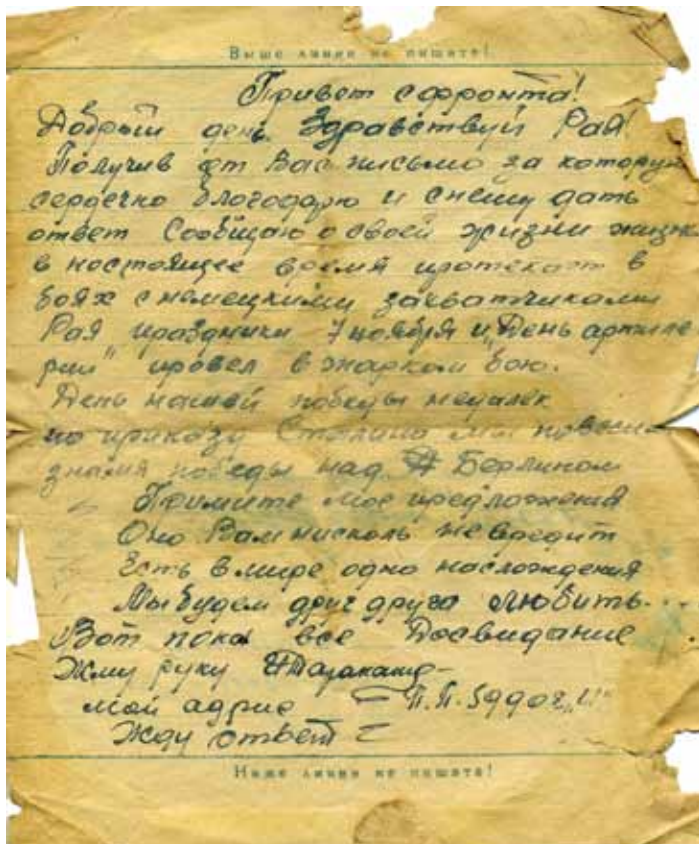 Выше линии не пишите!
Привет с фронта!
Добрый день Здравствуй Рая!
Получив от Вас письмо за которую
сердечно благодарю и спешу дать
ответ Сообщаю о своей жизни жизнь
в настоящее время протекает в
боях с немецкими захватчиками
Рая праздники 7 ноября и „День артиле
рии" провел в жарком бою.
День нашей победы недалек
по приказу Сталина мы
знамя победы над Берлином
Примите мое предложения
Оно Вам нисколь не вредит
Есть в мире одно наслождения
Мы будем друг друга любить...
Вот пока все Досвидание
Жму руку
мой адрис – П.П. 59902 „
Жду ответ =
Ниже линии не пишите!